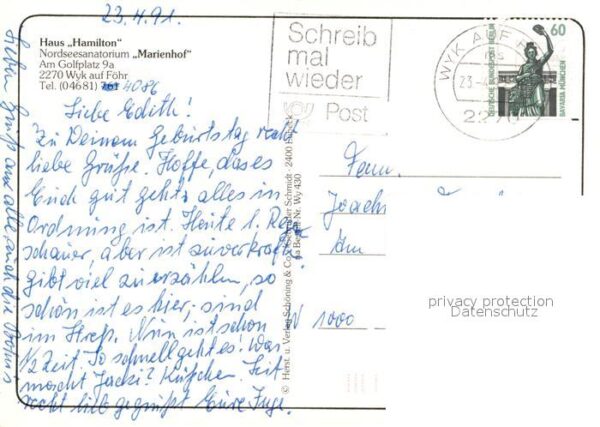 23.4.91.
Haus „Hamilton"
Nordseesanatorium „Marienhof"
Am Golfplatz 9a
2270 Wyk auf Föhr
Tel. (04681) 4086
Liebe Edith!
Zu Deinem Geburtstag recht
liebe Grüße. Hoffe, dass es
Euch gut geht, alles in
Ordnung ist. Heute 1.
schauer, aber ist
gibt viel zu erzählen, so
schön ist es hier, sind
im Streß. Nun ist schon
½ Zeit. So schnell geht es! Was
macht Jacki? Küßchen. Seid
recht lieb gegrüßt Eure Inge.
Lieben Gruß an alle, auch die
Schreib
mal
wieder
Post
WYK AUF F
23.4
22
60
DEUTSCHE BUNDESPOST BERLIN
BAVARIA MÜNCHEN
© Herst. u. Verlag Schöning & Co + Gebrüder Schmidt · 2400 Lübeck
Bestell Nr. Wy 430
Fam.
Joach
Am
W 1000
privacy protection
Datenschutz